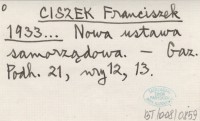 CISZEK Franciszek
1933... Nowa ustawa
samorządowa. — Gaz.
Podh. 21, nry 12, 13.